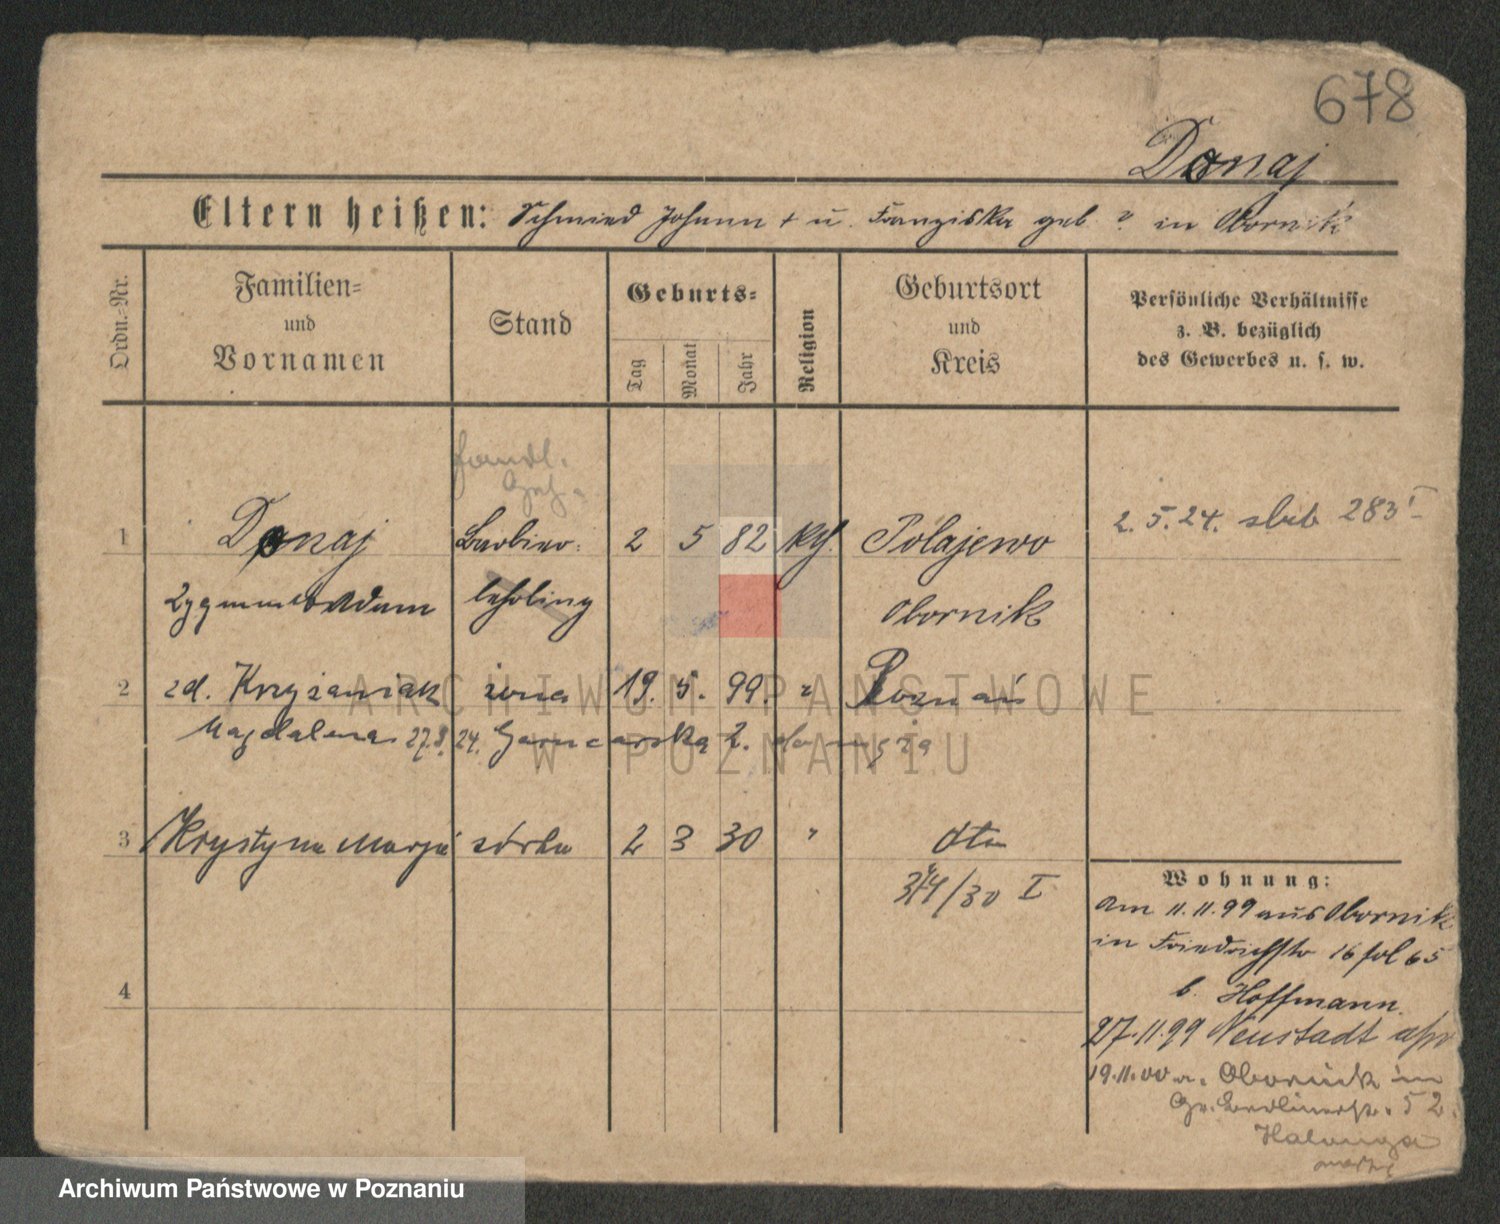 678
Donaj
Eltern heißen: Schmied Johann + u. Franziska geb. ? in Obornik
Ordn.=Nr.
Familien=
und
Vornamen
Stand
Geburts=
Tag
Monat
Jahr
Religion
Geburtsort
und
Kreis
Persönliche Verhältnisse
z. B. bezüglich
des Gewerbes u. s. w.
1 Donaj Barbier= 2 5 82 kth. Polajewo 2.5.24. slub 283 I
Zygmunt Adam lehrling Obornik
2 zd. Krzyżaniak żona 19. 5. 99. " Poznań
Magdalena 27.8.24. Garncarska 2.
3 Krystyna Marja córka 2 3 30 " dto
/30 I
4
Wohnung:
Am 11.11.99 aus Obornik
in Friedrichstr 16 fol 65
b. Hoffmann
27.11.99 Neustadt
19.11.00 a. Obornik in
Gr. Berlinerstr. 52
ARCHIWUM PAŃSTWOWE
W POZNANIU
Archiwum Państwowe w Poznaniu